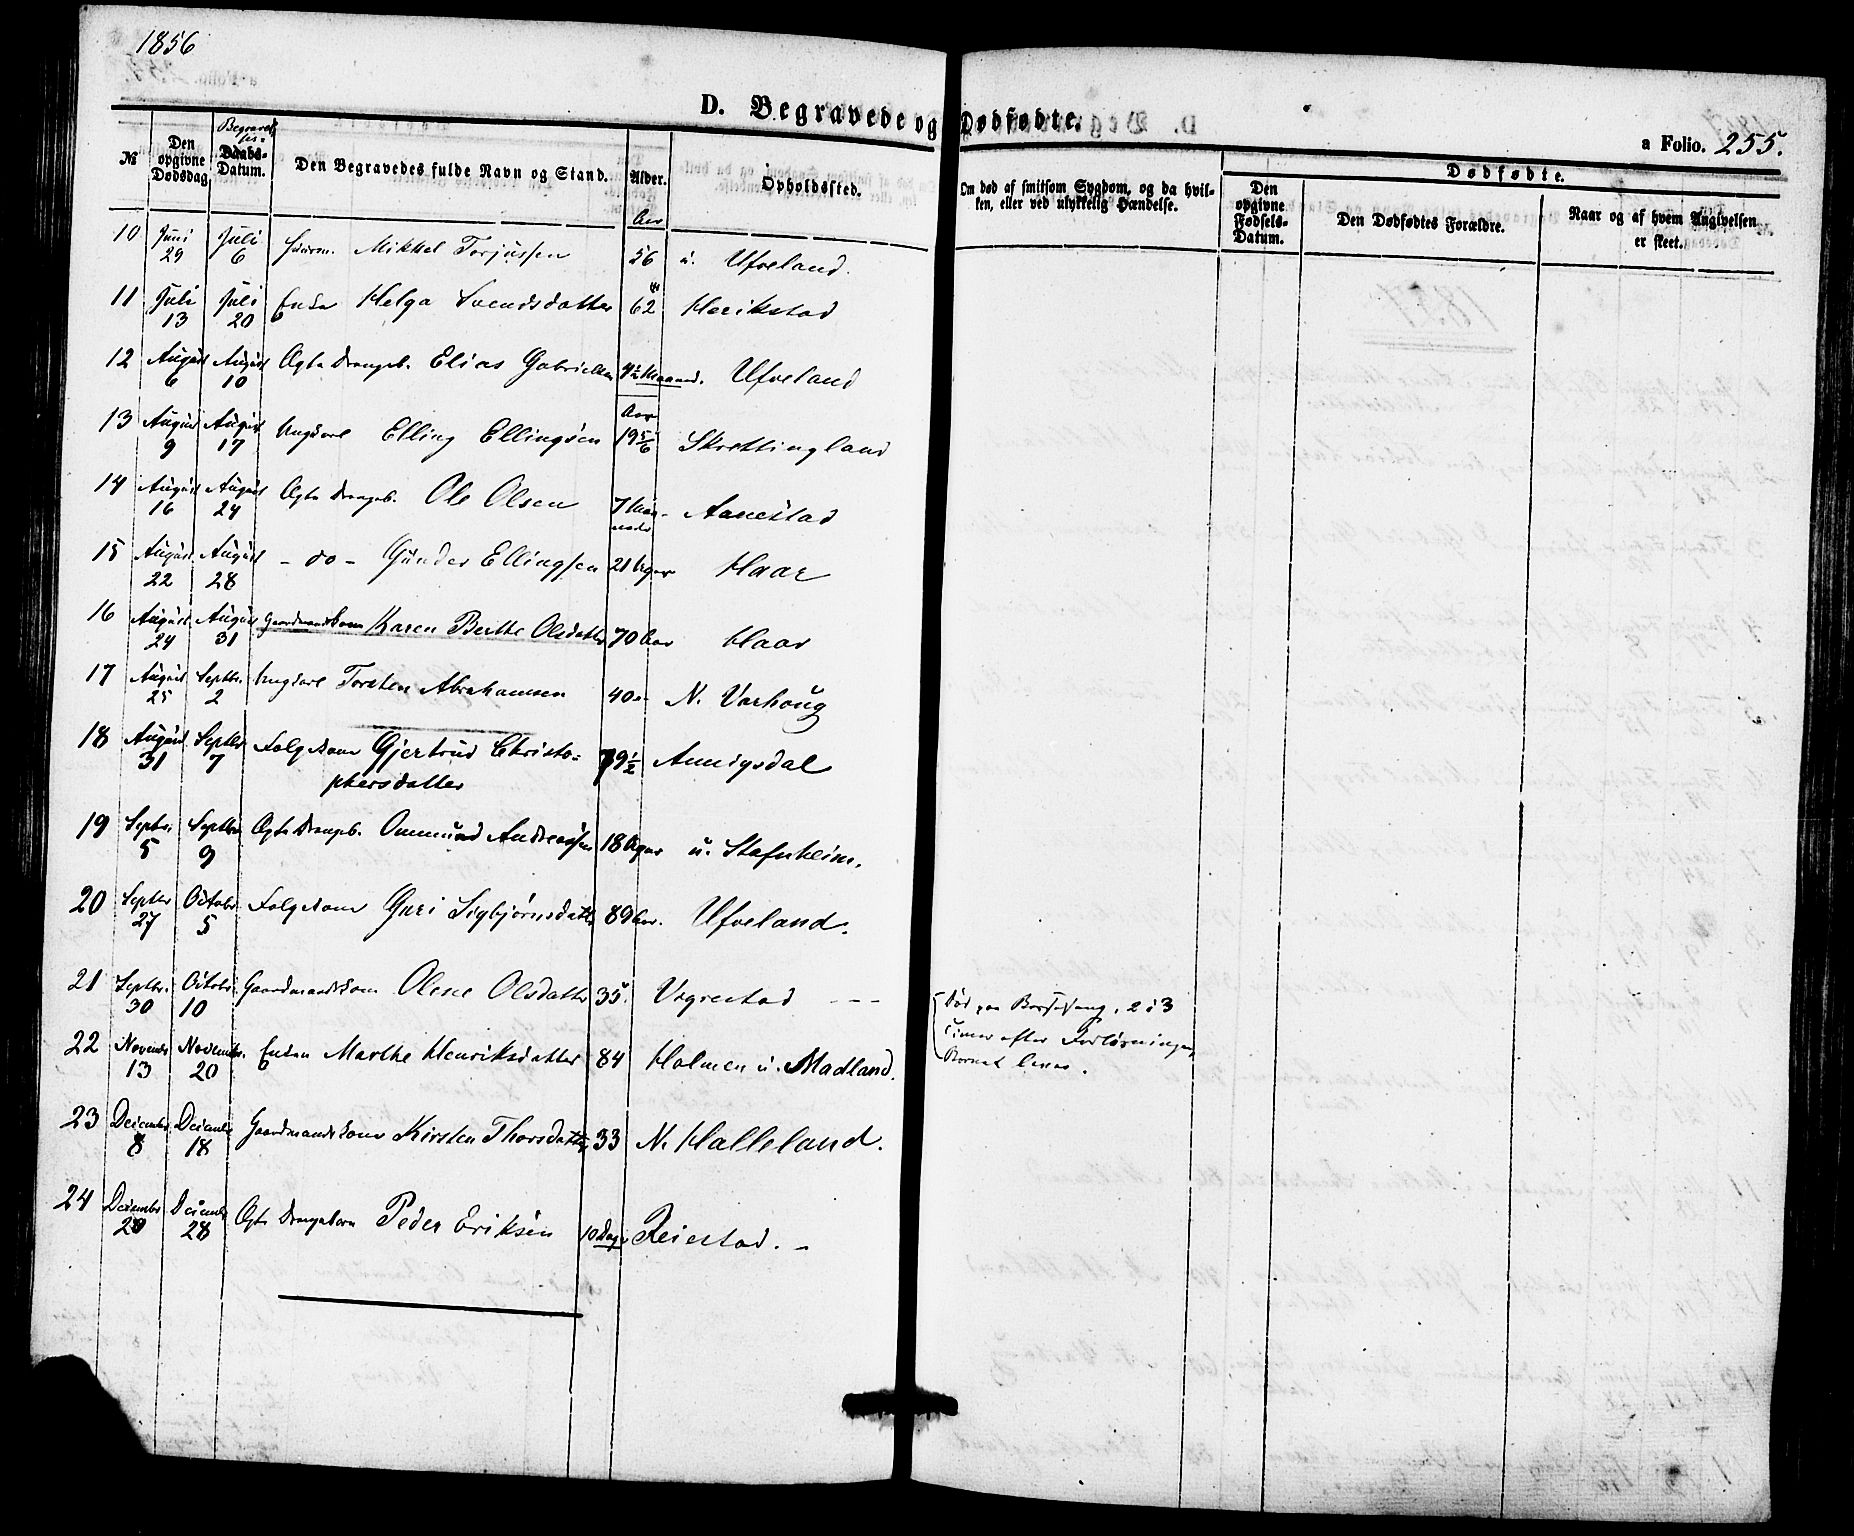 1856
D. Begravede og Dødfødte.
a Folio. 255.
№
Den opgivne Dødsdag
Begravelses-
Daabs-Datum.
Den Begravedes fulde Navn og Stand.
Alder.
Opholdssted.
Om død af smitsom Sygdom, og da hvilken, eller ved ulykkelig Hændelse.
Dødfødte.
Den opgivne Fødsels-Datum.
Den Dødfødtes Forældre.
Naar og af hvem Angivelsen er skeet.
Aar
10 Juni 29 Juli 6 Mikkel Torjussen 56 u. Ufveland.
11 Juli 13 Juli 20 Enke Helga Svendsdatter 62 Herikstad
12 August 6 August 10 Ægte Drengeb. Elias Gabrielsen 4½ Maaned. Ufveland
Aar
13 August 9 August 17 Ungkarl Elling Ellingsen 19 5/6 Skrettingland
14 August 16 August 24 Ægte Drengeb. Ole Olsen 7 Maaneder Aanestad
15 August 22 August 28 - do - Gunder Ellingsen 21 Uger Haar
16 August 24 August 31 Gaardmandskone Karen Berthe Olsdatter 70 Aar Haar
17 August 25 Septbr. 2 Ungkarl Torsten Abrahamsen 40 N. Varhoug
18 August 31 Septbr 7 Folgekone Gjertrud Christo-
phersdatter 79½ Auuigsdal
19 Septbr. 5 Septbr 9 Ægte Drengeb. Ommund Andreassen 18 Uger u. Stafnheim.
20 Septbr 27 Octobr. 5 Folgekone Guri Sigbjørnsdatter 89 Aar. Ufveland.
21 Septbr. 30 Octobr. 10 Gaardmandskone Olene Olsdatter 35. Vigrestad - - -
Død paa Barselseng, 2 à 3
Timer efter Forløsningen,
Barnet lever.
22 Novembr 13 Novembr. 20 Enken Marthe Henriksdatter 84 Holmen u. Madland.
23 Decembr 8 Decembr 18 Gaardmandskone Kirsten Thorsdatter 33 N. Halleland.
24 Decembr 20 Decembr 28 Ægte Drengebarn Peder Eriksen 10 Dage Reiestad. -